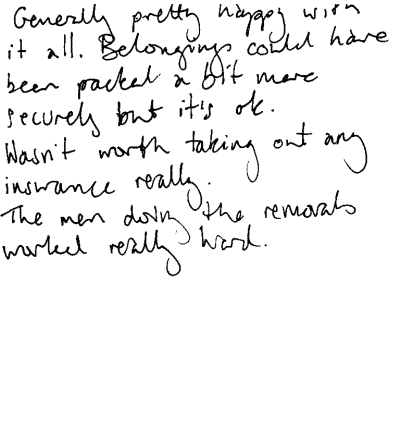 Generally pretty happy with
it all. Belongings could have
been packed a bit more
securely but it's ok.
Wasn't worth taking out any
insurance really.
The men doing the removals
worked really hard.